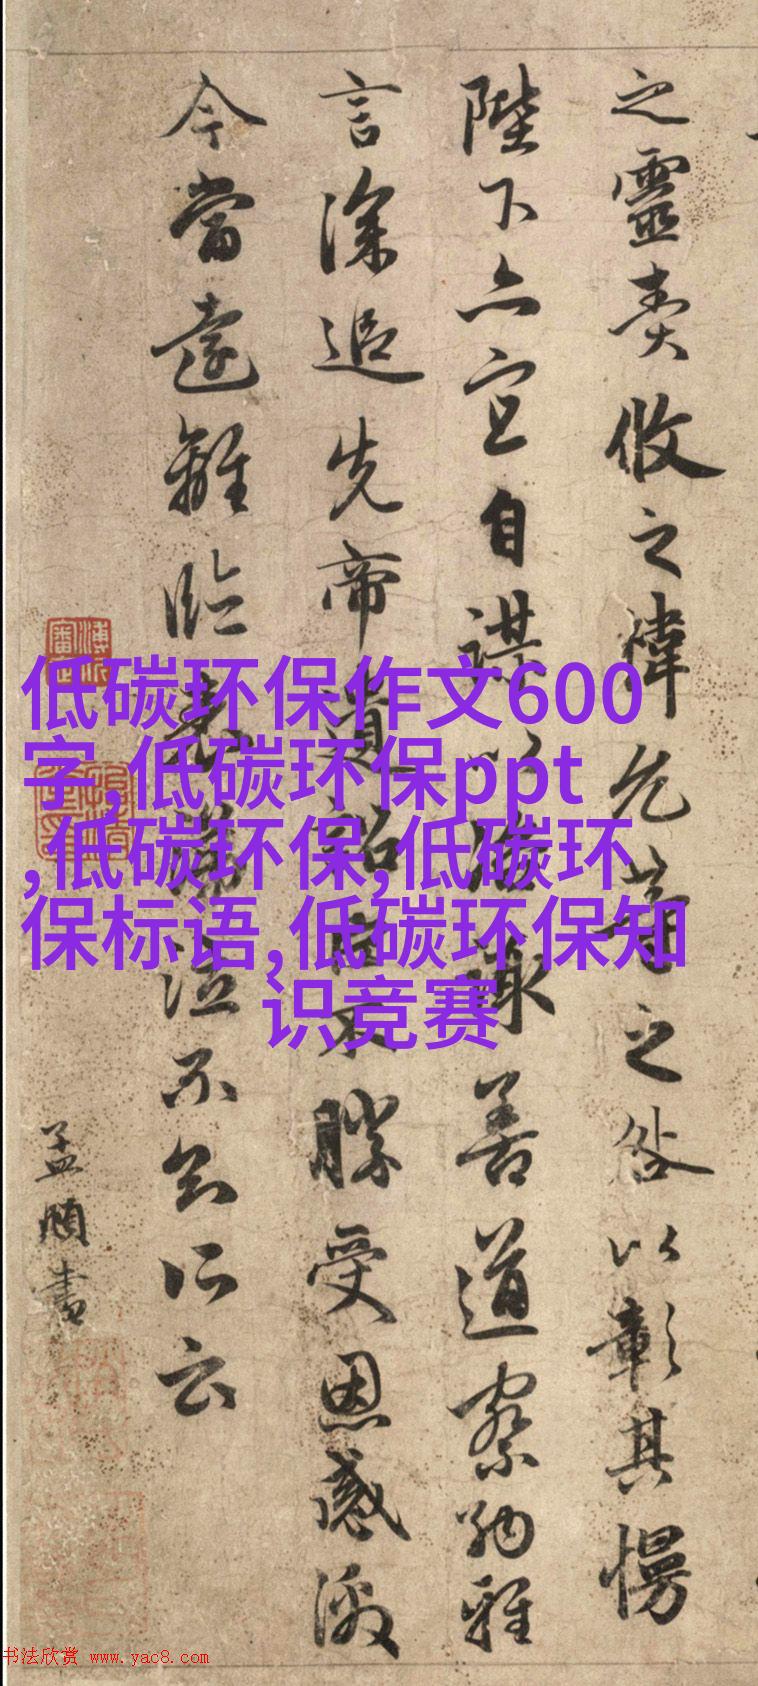 之靈責攸之禕允等之咎以彰其慢
陛下亦宜自謀以諮諏善道察納雅
言深追先帝遺詔臣不勝受恩感激
今當遠離臨表涕泣不知所云
孟頫書
低碳环保作文600
字,低碳环保ppt
,低碳环保,低碳环
保标语,低碳环保知
识竞赛
书法欣赏 www.yac8.com